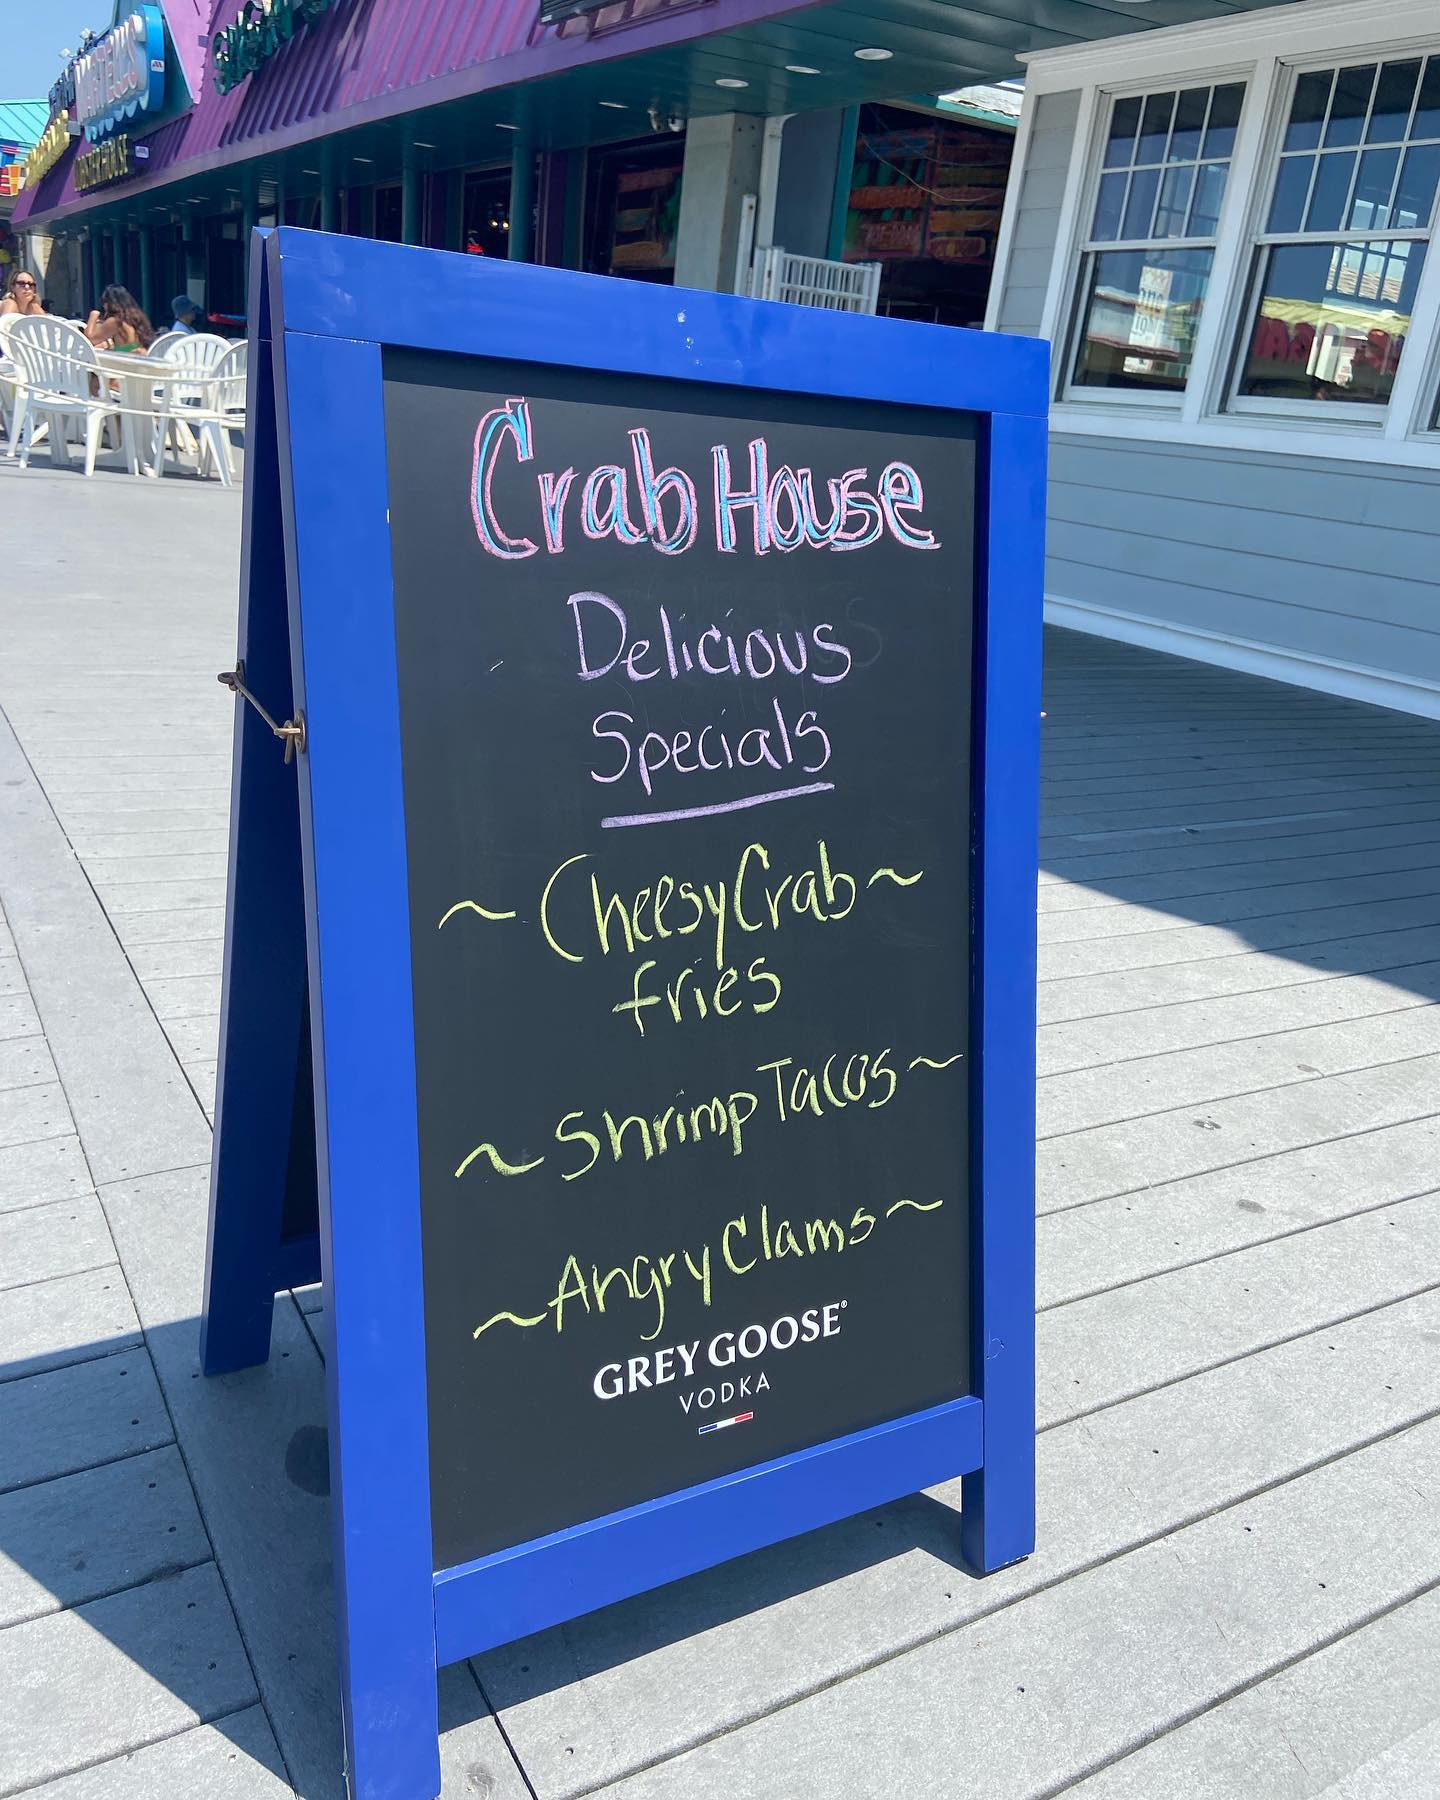 Crab House
Delicious
Specials
~ Cheesy Crab ~
fries
~ Shrimp Tacos ~
~ Angry Clams ~
GREY GOOSE®
VODKA